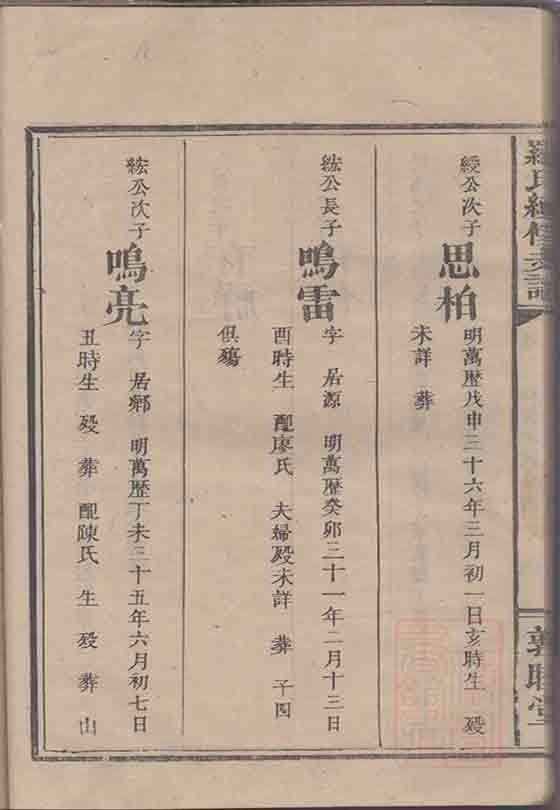 羅氏續修支譜
敦睦堂
綬公次子
思柏
明萬歷戊申三十六年三月初一日亥時生 歿
未詳 葬
紘公長子
鳴雷
字 居源 明萬歷癸卯三十一年二月十三日
酉時生 配廖氏 夫婦歿未詳 葬 子四
俱殤
紘公次子
鳴亮
字 居鄉 明萬歷丁未三十五年六月初七日
丑時生 歿 葬 配陳氏 生 歿 葬 山